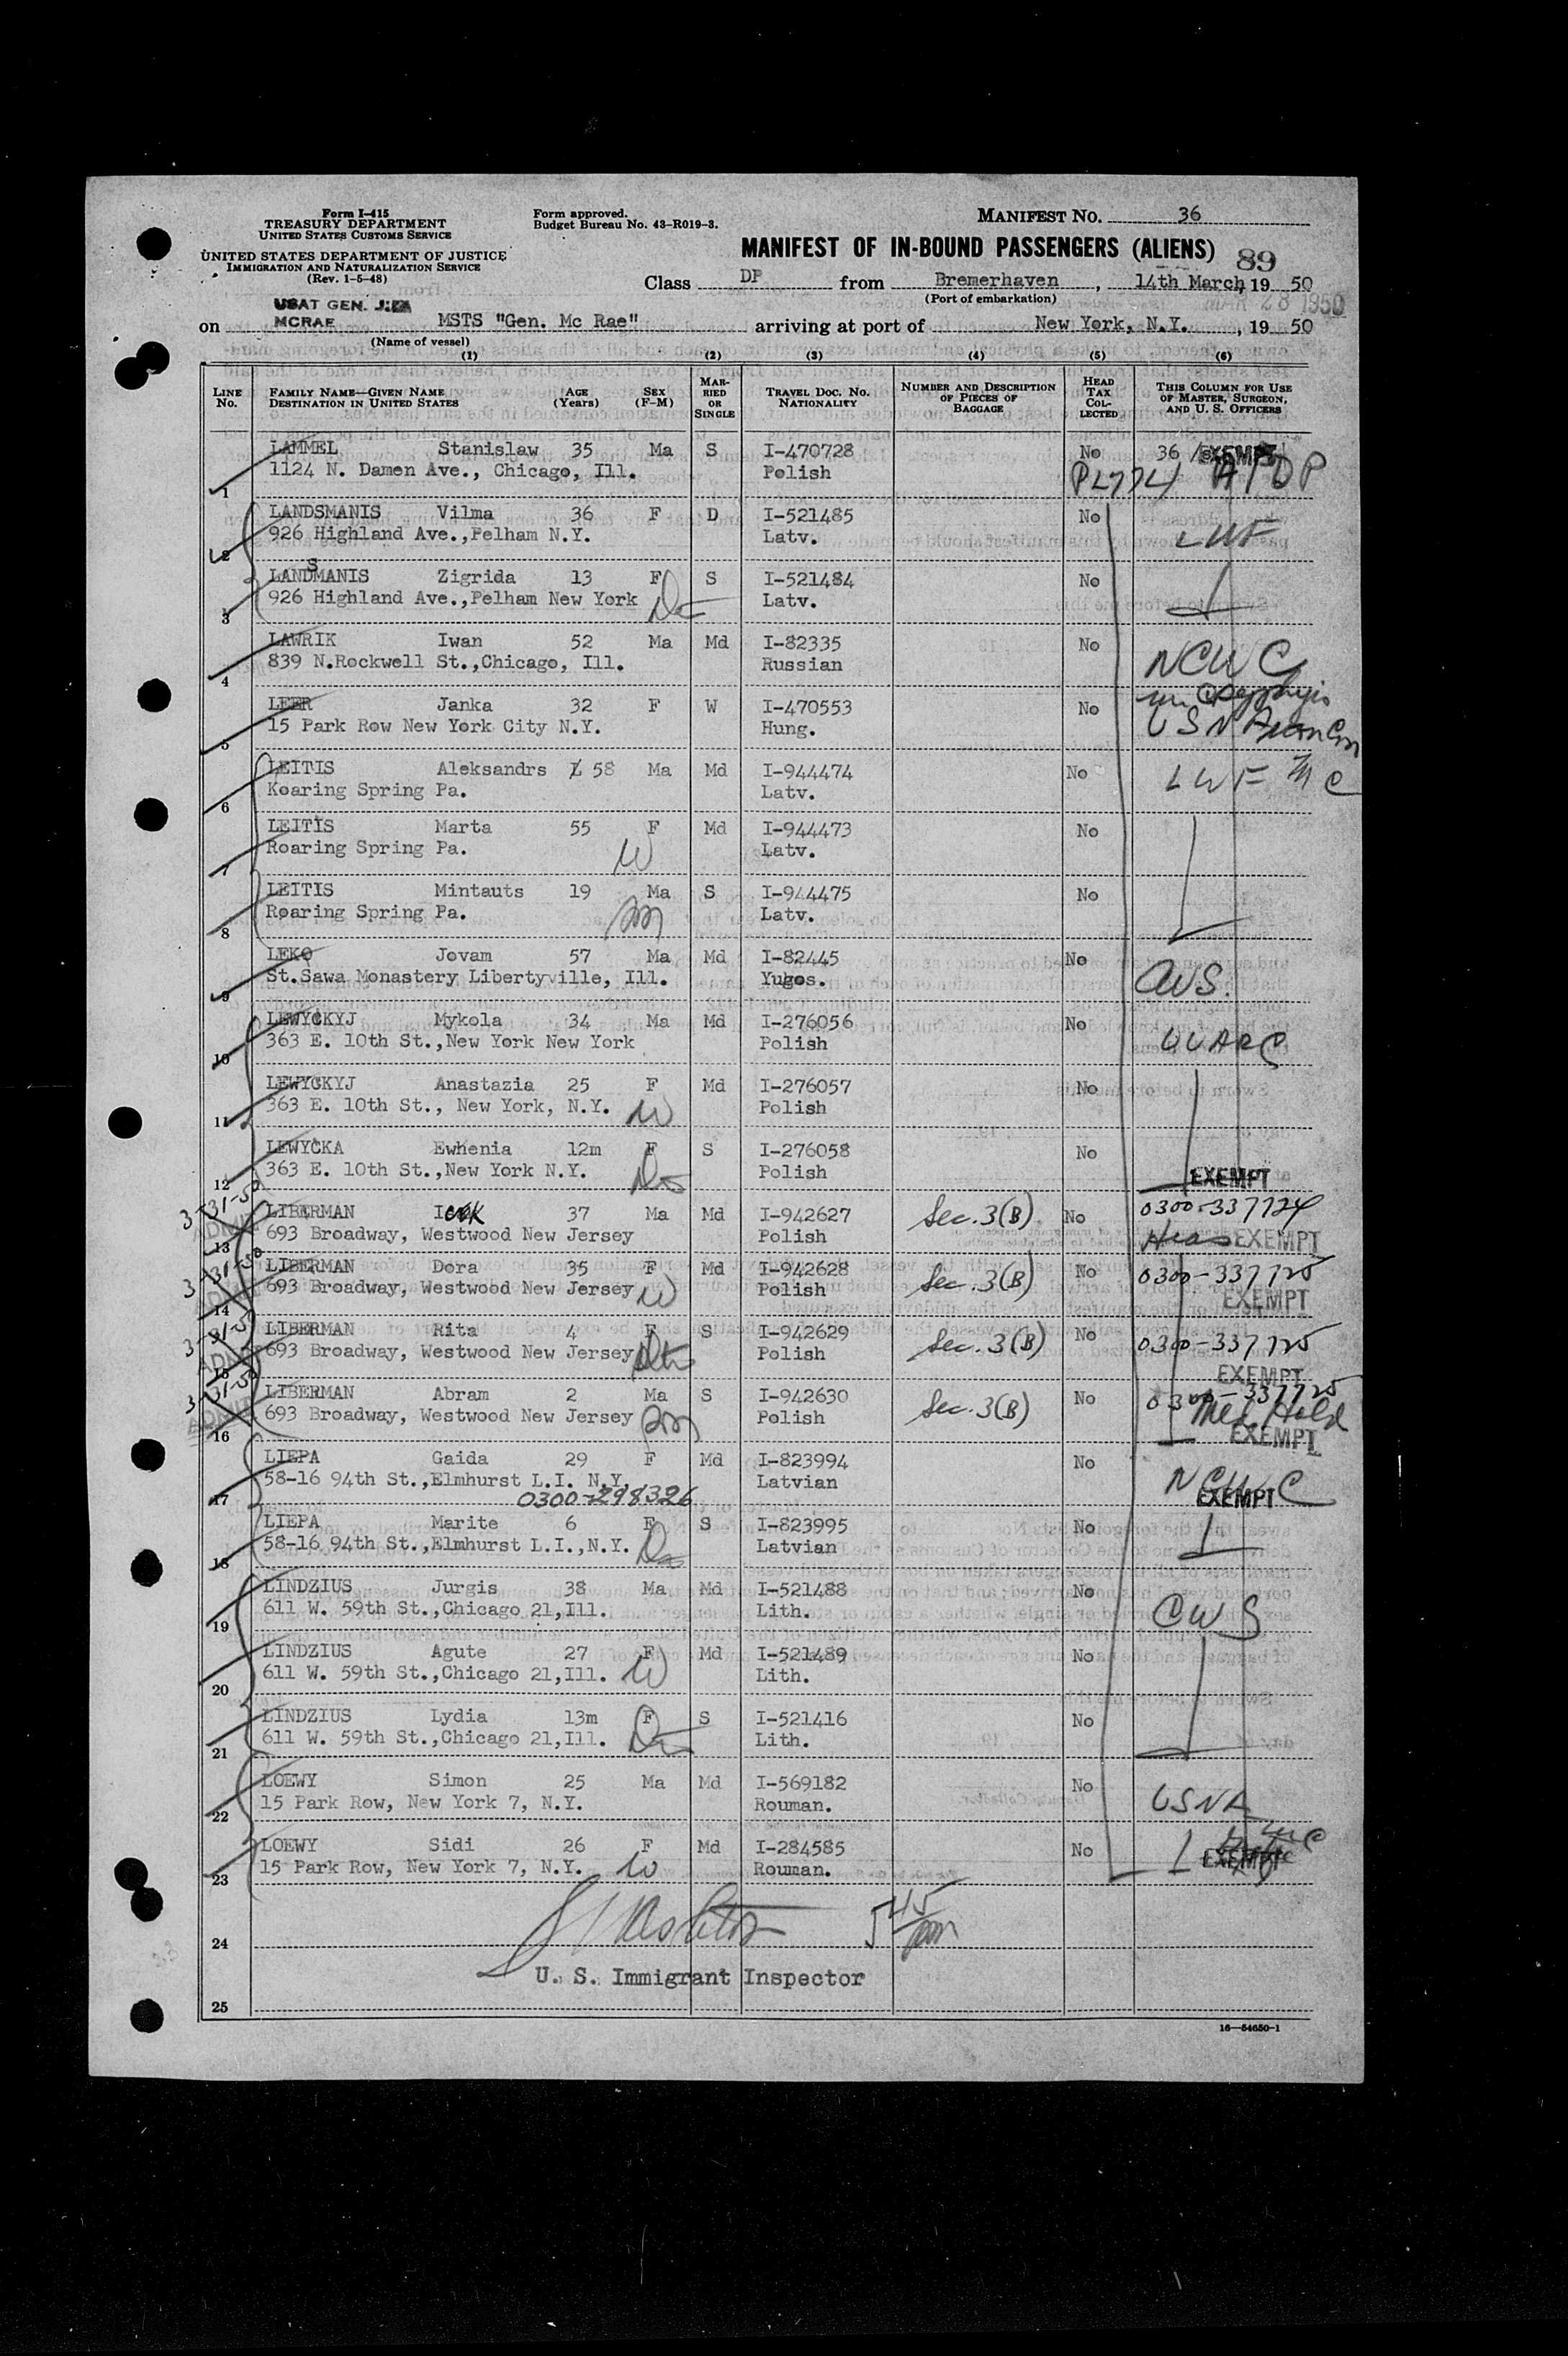 Form I-415
TREASURY DEPARTMENT
UNITED STATES CUSTOMS SERVICE
UNITED STATES DEPARTMENT OF JUSTICE
IMMIGRATION AND NATURALIZATION SERVICE
(Rev. 1-5-48)
Form approved.
Budget Bureau No. 43-R019-3.
MANIFEST NO. 36
MANIFEST OF IN-BOUND PASSENGERS (ALIENS) 89
Class DP from Bremerhaven, 14th March, 19 50
(Port of embarkation) MAR 28 1950
USAT GEN. J.
MCRAE
on MSTS "Gen. Mc Rae" arriving at port of New York, N.Y., 19 50
(Name of vessel)
(1) (2) (3) (4) (5) (6)
LINE No. FAMILY NAME—GIVEN NAME DESTINATION IN UNITED STATES AGE (Years) SEX (F-M) MARRIED OR SINGLE TRAVEL DOC. NO. NATIONALITY NUMBER AND DESCRIPTION OF PIECES OF BAGGAGE HEAD TAX COLLECTED THIS COLUMN FOR USE OF MASTER, SURGEON, AND U. S. OFFICERS
LAMMEL Stanislaw 35 Ma S I-470728 No 36 EXEMPT
1 1124 N. Damen Ave., Chicago, Ill. Polish PL774
LANDSMANIS Vilma 36 F D I-521485 No
2 926 Highland Ave.,Pelham N.Y. Latv. LWF
LANDSMANIS Zigrida 13 F S I-521484 No
3 926 Highland Ave.,Pelham New York Latv.
LAWRIK Iwan 52 Ma Md I-82335 No
4 839 N.Rockwell St.,Chicago, Ill. Russian NCWC
LEER Janka 32 F W I-470553 No
5 15 Park Row New York City N.Y. Hung. USNA
LEITIS Aleksandrs 58 Ma Md I-944474 No
6 Koaring Spring Pa. Latv. LWF
LEITIS Marta 55 F Md I-944473 No
7 Roaring Spring Pa. W Latv.
LEITIS Mintauts 19 Ma S I-944475 No
8 Roaring Spring Pa. Latv.
LEKO Jovam 57 Ma Md I-82445 No
9 St.Sawa Monastery Libertyville, Ill. Yugos. CWS.
LEWYCKYJ Mykola 34 Ma Md I-276056 No
10 363 E. 10th St.,New York New York Polish UUARC
LEWYCKYJ Anastazia 25 F Md I-276057 No
11 363 E. 10th St., New York, N.Y. W Polish
LEWYCKA Ewhenia 12m F S I-276058 No
12 363 E. 10th St.,New York N.Y. Polish EXEMPT
3-31-50 LIBERMAN Icek 37 Ma Md I-942627 Sec. 3(B) No 0300-337724
13 693 Broadway, Westwood New Jersey Polish Hias EXEMPT
3-31-50 LIBERMAN Dora 35 F Md I-942628 Sec. 3(B) No 0300-337725
14 693 Broadway, Westwood New Jersey W Polish EXEMPT
3-31-50 LIBERMAN Rita 4 F S I-942629 Sec. 3(B) No 0300-337725
15 693 Broadway, Westwood New Jersey Polish EXEMPT
3-31-50 LIBERMAN Abram 2 Ma S I-942630 Sec. 3(B) No 0300-337725
16 693 Broadway, Westwood New Jersey Polish Med. Hold
EXEMPT
LIEPA Gaida 29 F Md I-823994 No
17 58-16 94th St.,Elmhurst L.I. N.Y. Latvian NCWC
0300-298326 EXEMPT
LIEPA Marite 6 F S I-823995 No
18 58-16 94th St.,Elmhurst L.I.,N.Y. Latvian
LINDZIUS Jurgis 38 Ma Md I-521488 No
19 611 W. 59th St.,Chicago 21,Ill. Lith. CWS
LINDZIUS Agute 27 F Md I-521489 No
20 611 W. 59th St.,Chicago 21,Ill. W Lith.
LINDZIUS Lydia 13m F S I-521416 No
21 611 W. 59th St.,Chicago 21,Ill. Lith.
LOEWY Simon 25 Ma Md I-569182 No
22 15 Park Row, New York 7, N.Y. Rouman. USNA
LOEWY Sidi 26 F Md I-284585 No
23 15 Park Row, New York 7, N.Y. W Rouman. EXEMPT
24 5 45 pm
U. S. Immigrant Inspector
25
16—54650-1